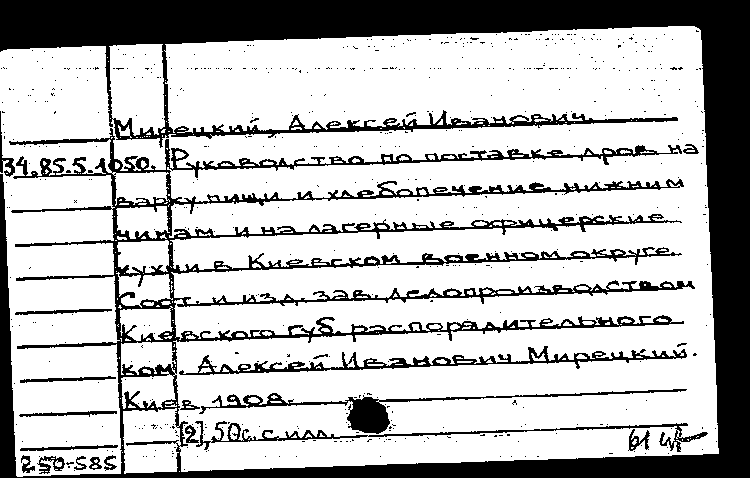 Мирецкий, Алексей Иванович.
34.85.5.1050. Руководство по поставке дров на
варку пищи и хлебопечение нижним
чинам и на лагерные офицерские
кухни в Киевском военном округе.
Сост. и изд. зав. делопроизводством
Киевского губ. распорядительного
ком. Алексей Иванович Мирецкий.
Киев, 1908.
[2], 50с. с илл.
250-585